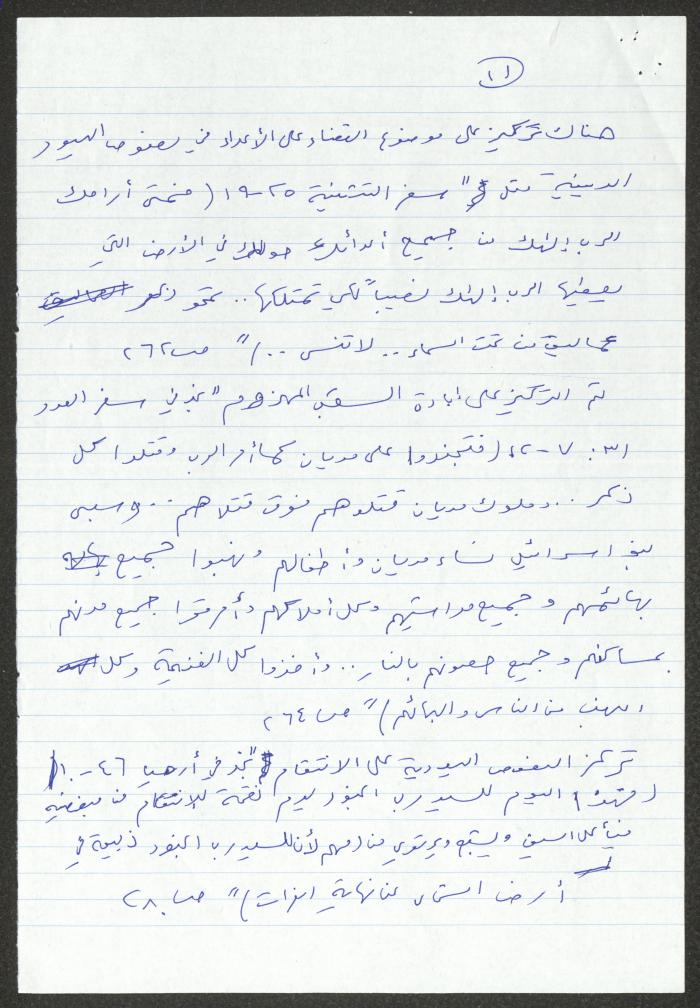 (١١)
هناك تركيز على موضوع القضاء على الأعداء في نصوص اليهود
الدينية مثل " سفر التثنية ٢٥-١٩ ( فمتى أراحك
الرب إلهك من جميع أعدائك حولك في الأرض التي
يعطيها الرب إلهك نصيباً لكي تمتلكها .. تمحو ذكر
عماليق من تحت السماء .. لا تنسى ..)" ص ٢٦٢
ثم التركيز على إبادة الشعب المهزوم " نجد في سفر العدد
٣١ : ٧-١٢ ( فتجندوا على مديان كما أمر الرب وقتلوا كل
ذكر ... وملوك مديان قتلوهم فوق قتلاهم ... وسبى
بنو اسرائيل نساء مديان وأطفالهم ونهبوا جميع
بهائمهم وجميع مواشيهم وكل أملاكهم وأحرقوا جميع مدنهم
بمساكنهم وجميع حصونهم بالنار .. وأخذوا كل الغنيمة وكل
النهب من الناس والبهائم )" ص ٢٦٤
تركز النصوص اليهودية على الانتقام " نجد في أرميا ٤٦-١٠
( فهذا اليوم للسيد رب الجنود يوم نقمة للانتقام من مبغضيه
فيأكل السيف ويشبع ويرتوي من دمهم لأن للسيد رب الجنود ذبيحة في
أرض الشمال عند نهر الفرات )" ص ٢٨٠